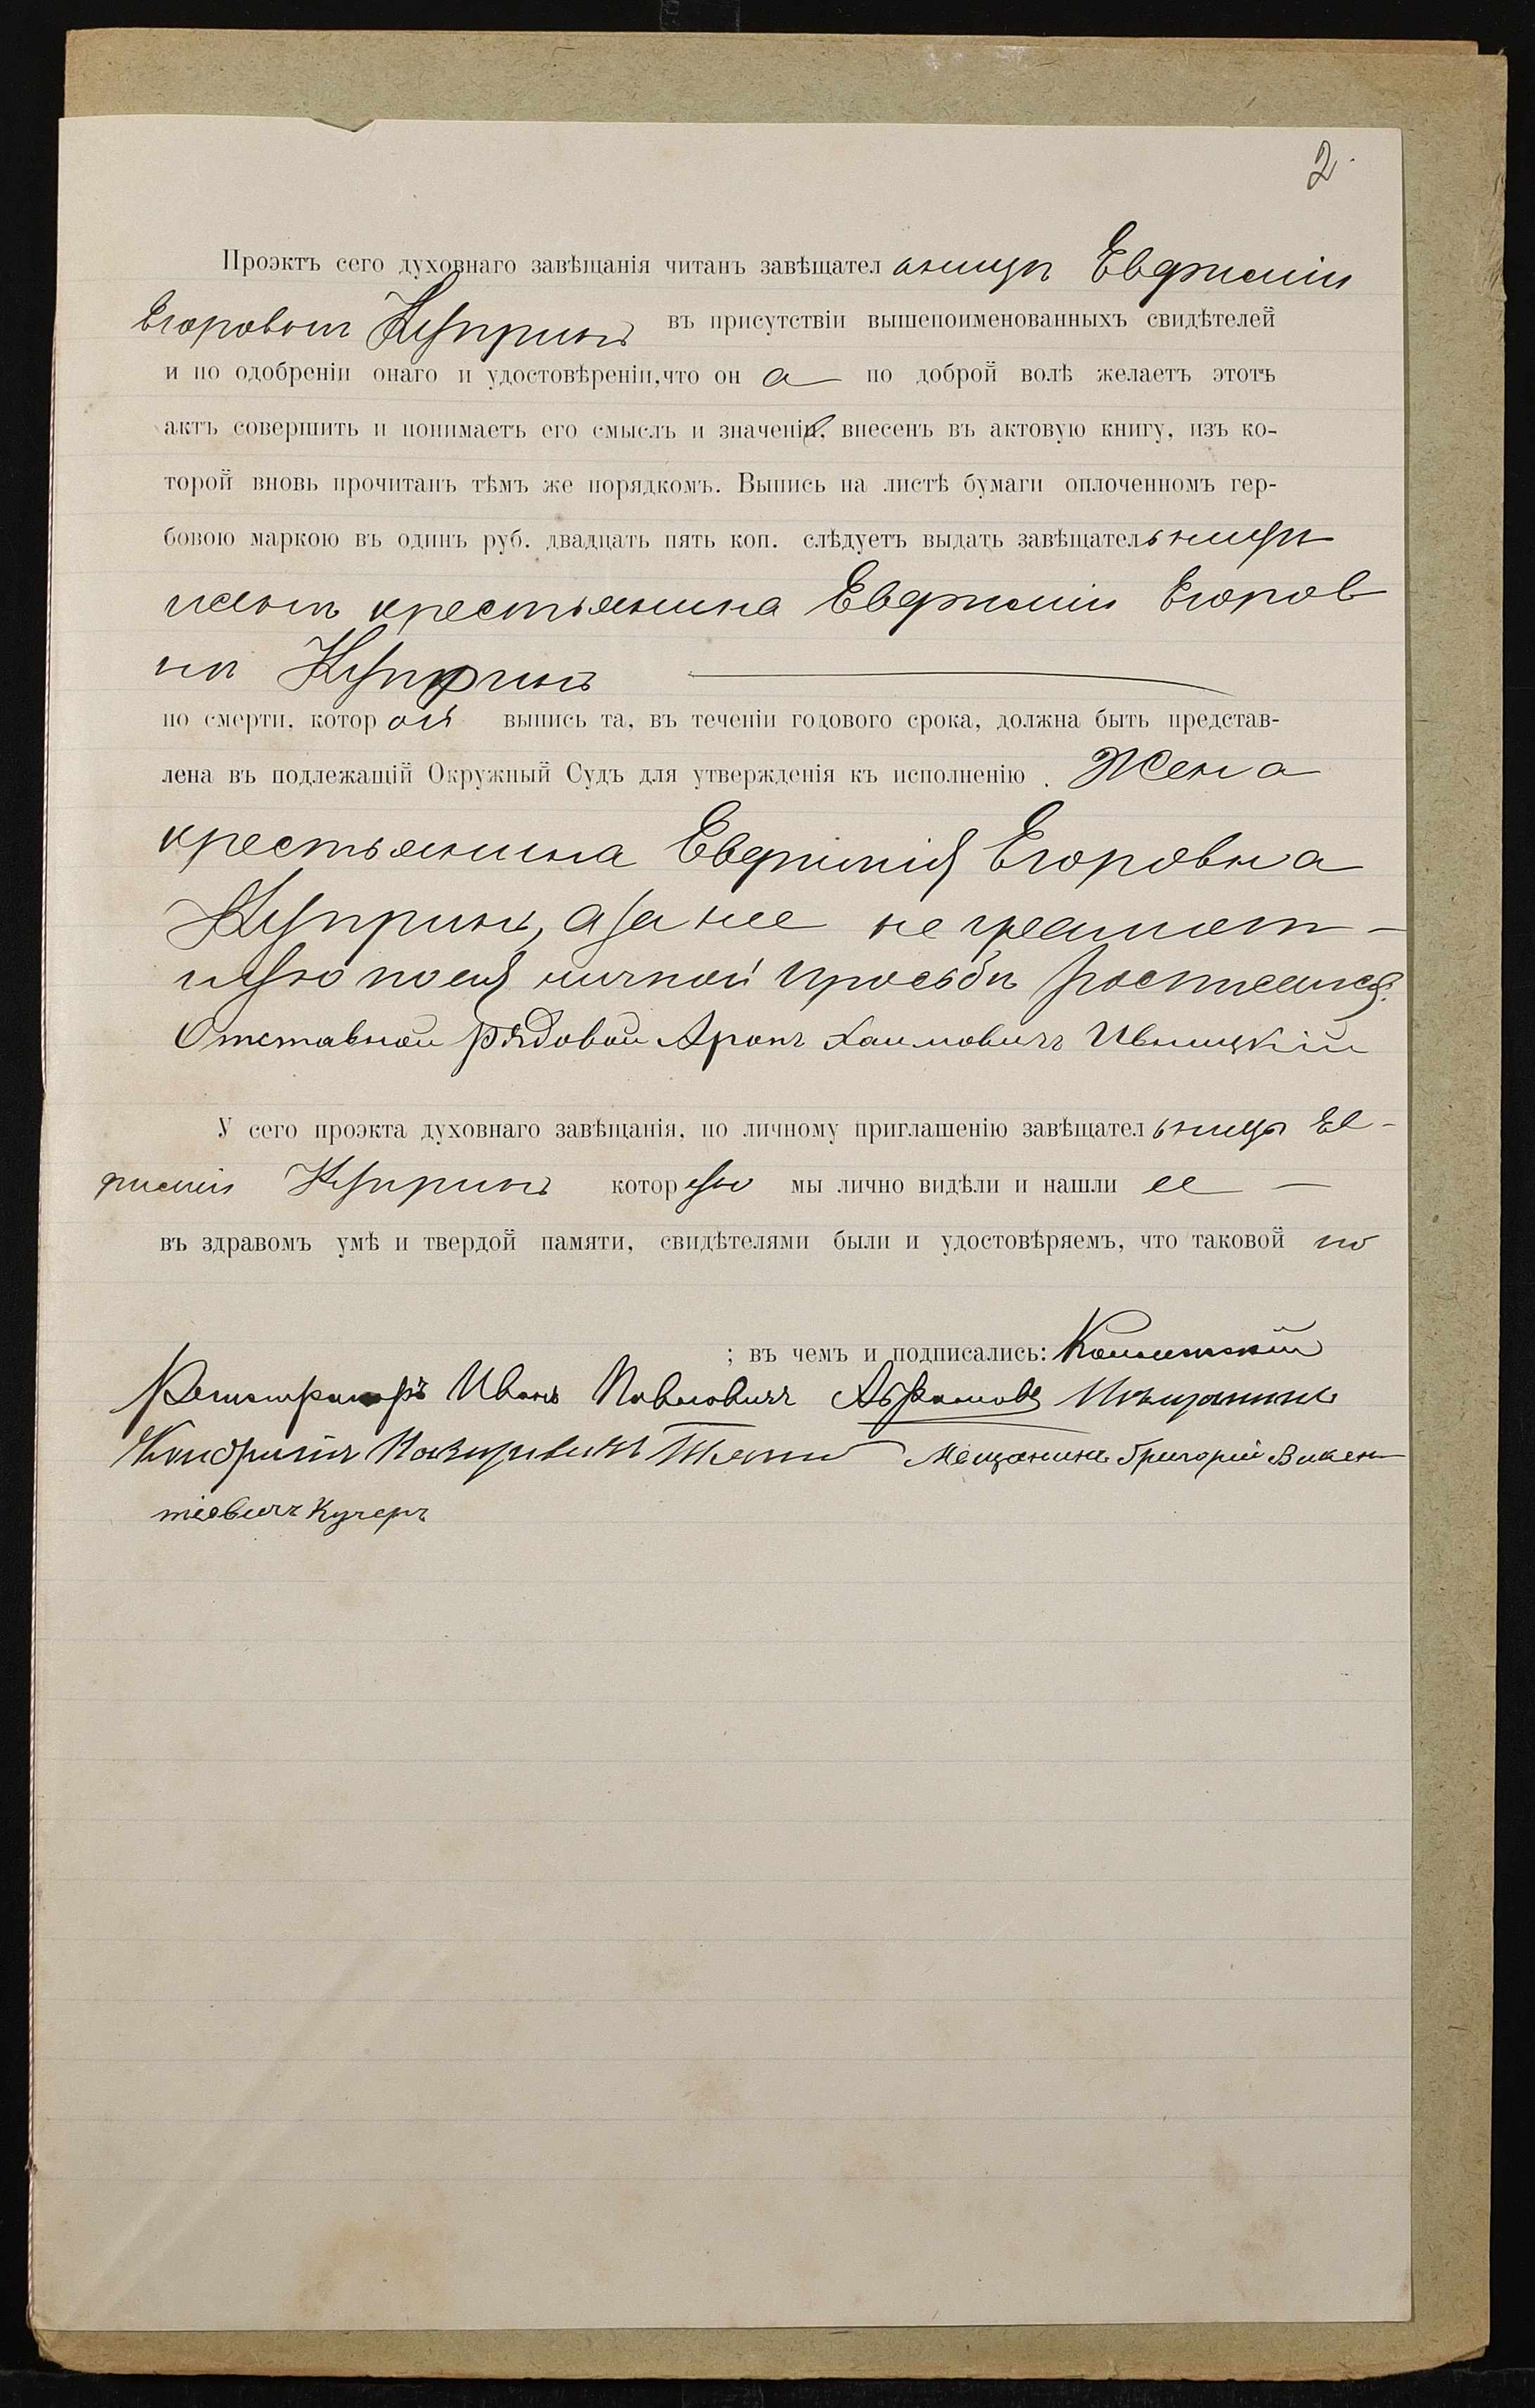 2
Проэктъ сего духовнаго завѣщанія читанъ завѣщательницѣ Евфиміи
Егоровнѣ Купринъ въ присутствіи вышепоименованныхъ свидѣтелей
и по одобреніи онаго и удостовѣреніи, что она по доброй волѣ желаетъ этотъ
актъ совершить и понимаетъ его смыслъ и значеніе, внесенъ въ актовую книгу, изъ ко-
торой вновь прочитанъ тѣмъ же порядкомъ. Выпись на листѣ бумаги оплоченномъ гер-
бовою маркою въ одинъ руб. двадцать пять коп. слѣдуетъ выдать завѣщательницѣ
женѣ крестьянина Евфиміи Егоров
нѣ Купринъ
по смерти, которой выпись та, въ теченіи годового срока, должна быть представ-
лена въ подлежащій Окружный Судъ для утвержденія къ исполненію. Жена
крестьянина Евфимія Егоровна
Купринъ, а за нее неграмот-
ную по ея личной просьбѣ росписался
Отставной рядовой Аронъ Хаимовичъ Ивницкій
У сего проэкта духовнаго завѣщанія, по личному приглашенію завѣщательницы Ев-
фиміи Купринъ которую мы лично видѣли и нашли ее
въ здравомъ умѣ и твердой памяти, свидѣтелями были и удостовѣряемъ, что таковой по
; въ чемъ и подписались:
Иванъ Павловичъ Абрамовъ Мѣщанинъ
Мещанинъ Григорій Викен
тіевичъ Кучеръ